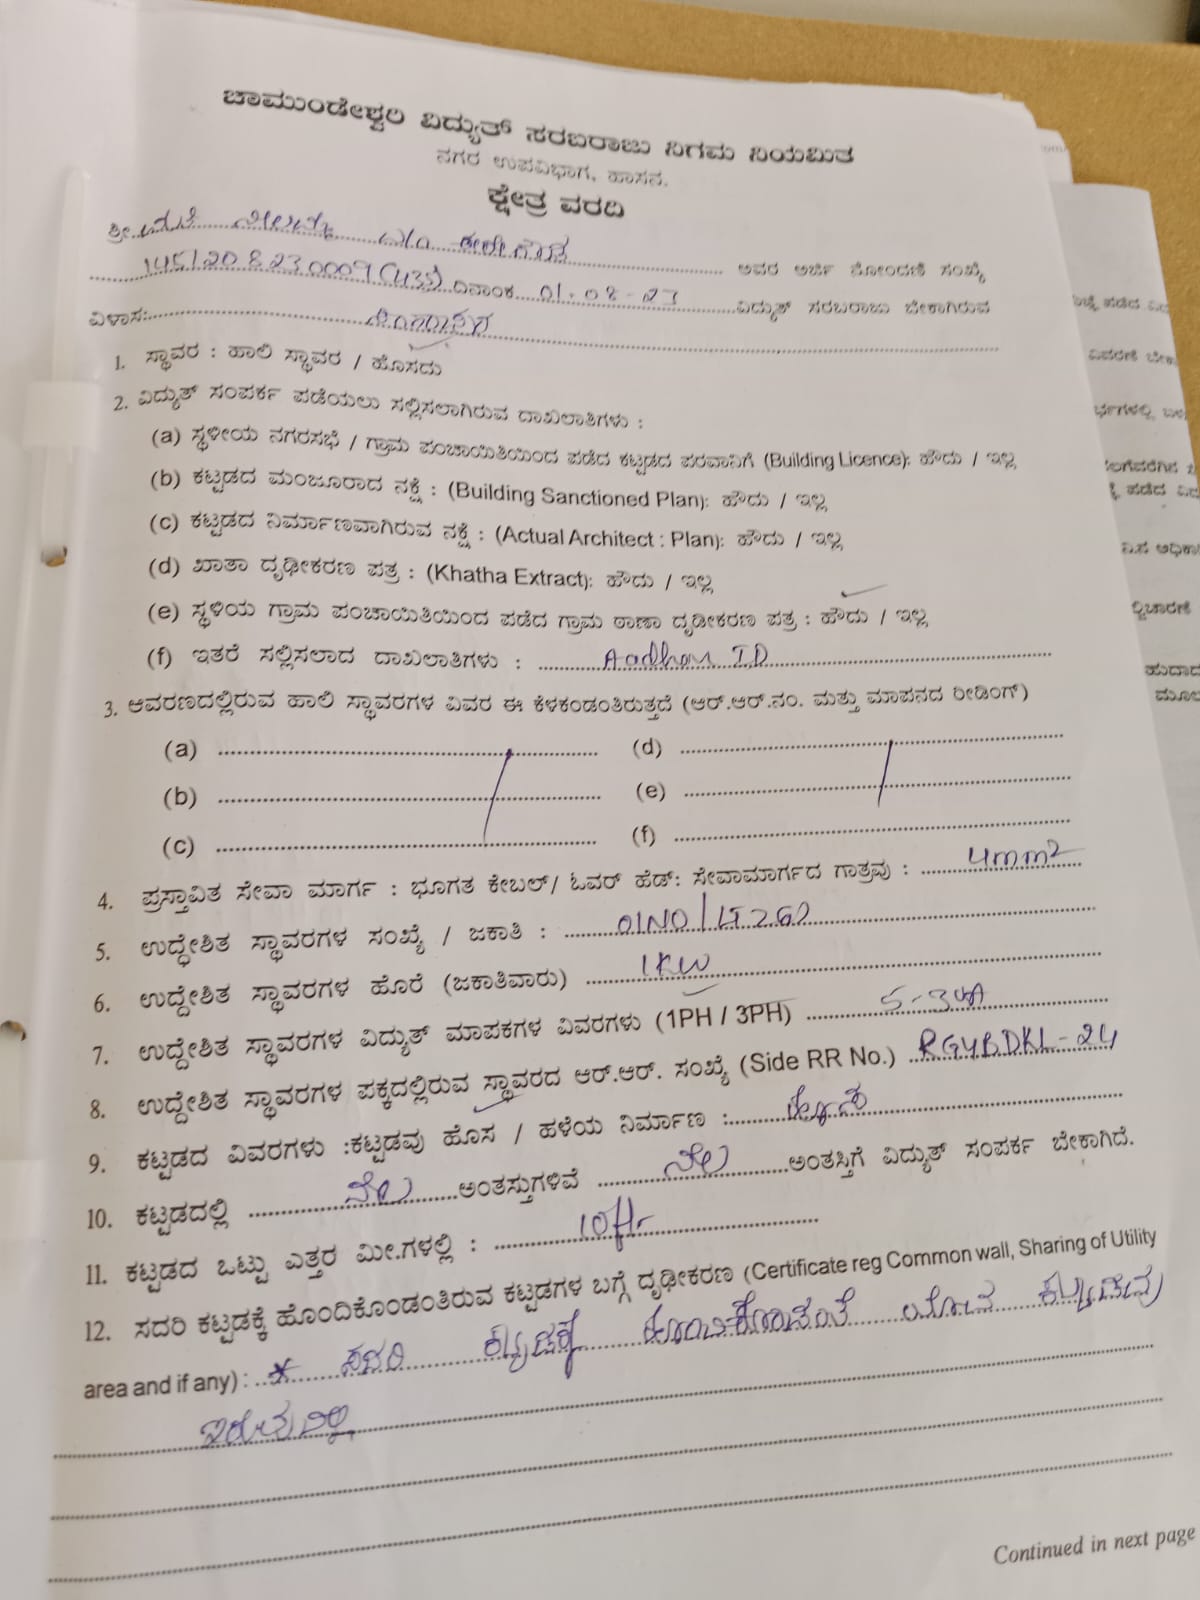 ಚಾಮುಂಡೇಶ್ವರಿ ವಿದ್ಯುತ್ ಸರಬರಾಜು ನಿಗಮ ನಿಯಮಿತ
ನಗರ ಉಪವಿಭಾಗ, ಹಾಸನ.
ಕ್ಷೇತ್ರ ವರದಿ
ಶ್ರೀ ಅವರ ಅರ್ಜಿ ನೋಂದಣಿ ಸಂಖ್ಯೆ
ದಿನಾಂಕ 01-08-23 ವಿದ್ಯುತ್ ಸರಬರಾಜು ಬೇಕಾಗಿರುವ
ವಿಳಾಸ:
1. ಸ್ಥಾವರ : ಹಾಲಿ ಸ್ಥಾವರ / ಹೊಸದು
2. ವಿದ್ಯುತ್ ಸಂಪರ್ಕ ಪಡೆಯಲು ಸಲ್ಲಿಸಲಾಗಿರುವ ದಾಖಲಾತಿಗಳು :
(a) ಸ್ಥಳೀಯ ನಗರಸಭೆ / ಗ್ರಾಮ ಪಂಚಾಯಿತಿಯಿಂದ ಪಡೆದ ಕಟ್ಟಡದ ಪರವಾನಿಗೆ (Building Licence): ಹೌದು / ಇಲ್ಲ
(b) ಕಟ್ಟಡದ ಮಂಜೂರಾದ ನಕ್ಷೆ : (Building Sanctioned Plan): ಹೌದು / ಇಲ್ಲ
(c) ಕಟ್ಟಡದ ನಿರ್ಮಾಣವಾಗಿರುವ ನಕ್ಷೆ : (Actual Architect : Plan): ಹೌದು / ಇಲ್ಲ
(d) ಖಾತಾ ದೃಢೀಕರಣ ಪತ್ರ : (Khatha Extract): ಹೌದು / ಇಲ್ಲ
(e) ಸ್ಥಳಿಯ ಗ್ರಾಮ ಪಂಚಾಯಿತಿಯಿಂದ ಪಡೆದ ಗ್ರಾಮ ಠಾಣಾ ದೃಡೀಕರಣ ಪತ್ರ : ಹೌದು / ಇಲ್ಲ
(f) ಇತರೆ ಸಲ್ಲಿಸಲಾದ ದಾಖಲಾತಿಗಳು : Aadhar ID
3. ಆವರಣದಲ್ಲಿರುವ ಹಾಲಿ ಸ್ಥಾವರಗಳ ವಿವರ ಈ ಕೆಳಕಂಡಂತಿರುತ್ತದೆ (ಆರ್.ಆರ್.ನಂ. ಮತ್ತು ಮಾಪನದ ರೀಡಿಂಗ್)
(a) (d)
(b) (e)
(c) (f)
4. ಪ್ರಸ್ತಾವಿತ ಸೇವಾ ಮಾರ್ಗ : ಭೂಗತ ಕೇಬಲ್/ ಓವರ್ ಹೆಡ್: ಸೇವಾಮಾರ್ಗದ ಗಾತ್ರವು : 4mm2
5. ಉದ್ಧೇಶಿತ ಸ್ಥಾವರಗಳ ಸಂಖ್ಯೆ / ಜಕಾತಿ : 01NO /
6. ಉದ್ದೇಶಿತ ಸ್ಥಾವರಗಳ ಹೊರೆ (ಜಕಾತಿವಾರು) 1KW
7. ಉದ್ದೇಶಿತ ಸ್ಥಾವರಗಳ ವಿದ್ಯುತ್ ಮಾಪಕಗಳ ವಿವರಗಳು (1PH / 3PH)
8. ಉದ್ದೇಶಿತ ಸ್ಥಾವರಗಳ ಪಕ್ಕದಲ್ಲಿರುವ ಸ್ಥಾವರದ ಆರ್.ಆರ್. ಸಂಖ್ಯೆ (Side RR No.) RGYBDKL-24
9. ಕಟ್ಟಡದ ವಿವರಗಳು :ಕಟ್ಟಡವು ಹೊಸ / ಹಳೆಯ ನಿರ್ಮಾಣ : ಹೊಸ
10. ಕಟ್ಟಡದಲ್ಲಿ ನೆಲ ಅಂತಸ್ತುಗಳಿವೆ ನೆಲ ಅಂತಸ್ತಿಗೆ ವಿದ್ಯುತ್ ಸಂಪರ್ಕ ಬೇಕಾಗಿದೆ.
11. ಕಟ್ಟಡದ ಒಟ್ಟು ಎತ್ತರ ಮೀ.ಗಳಲ್ಲಿ :
12. ಸದರಿ ಕಟ್ಟಡಕ್ಕೆ ಹೊಂದಿಕೊಂಡಂತಿರುವ ಕಟ್ಟಡಗಳ ಬಗ್ಗೆ ದೃಢೀಕರಣ (Certificate reg Common wall, Sharing of Utility
area and if any) : * ಸದರಿ ಕಟ್ಟಡಕ್ಕೆ ಹೊಂದಿಕೊಂಡಂತೆ ಯಾವ ಕಟ್ಟಡವು
ಇರುವುದಿಲ್ಲ
Continued in next page